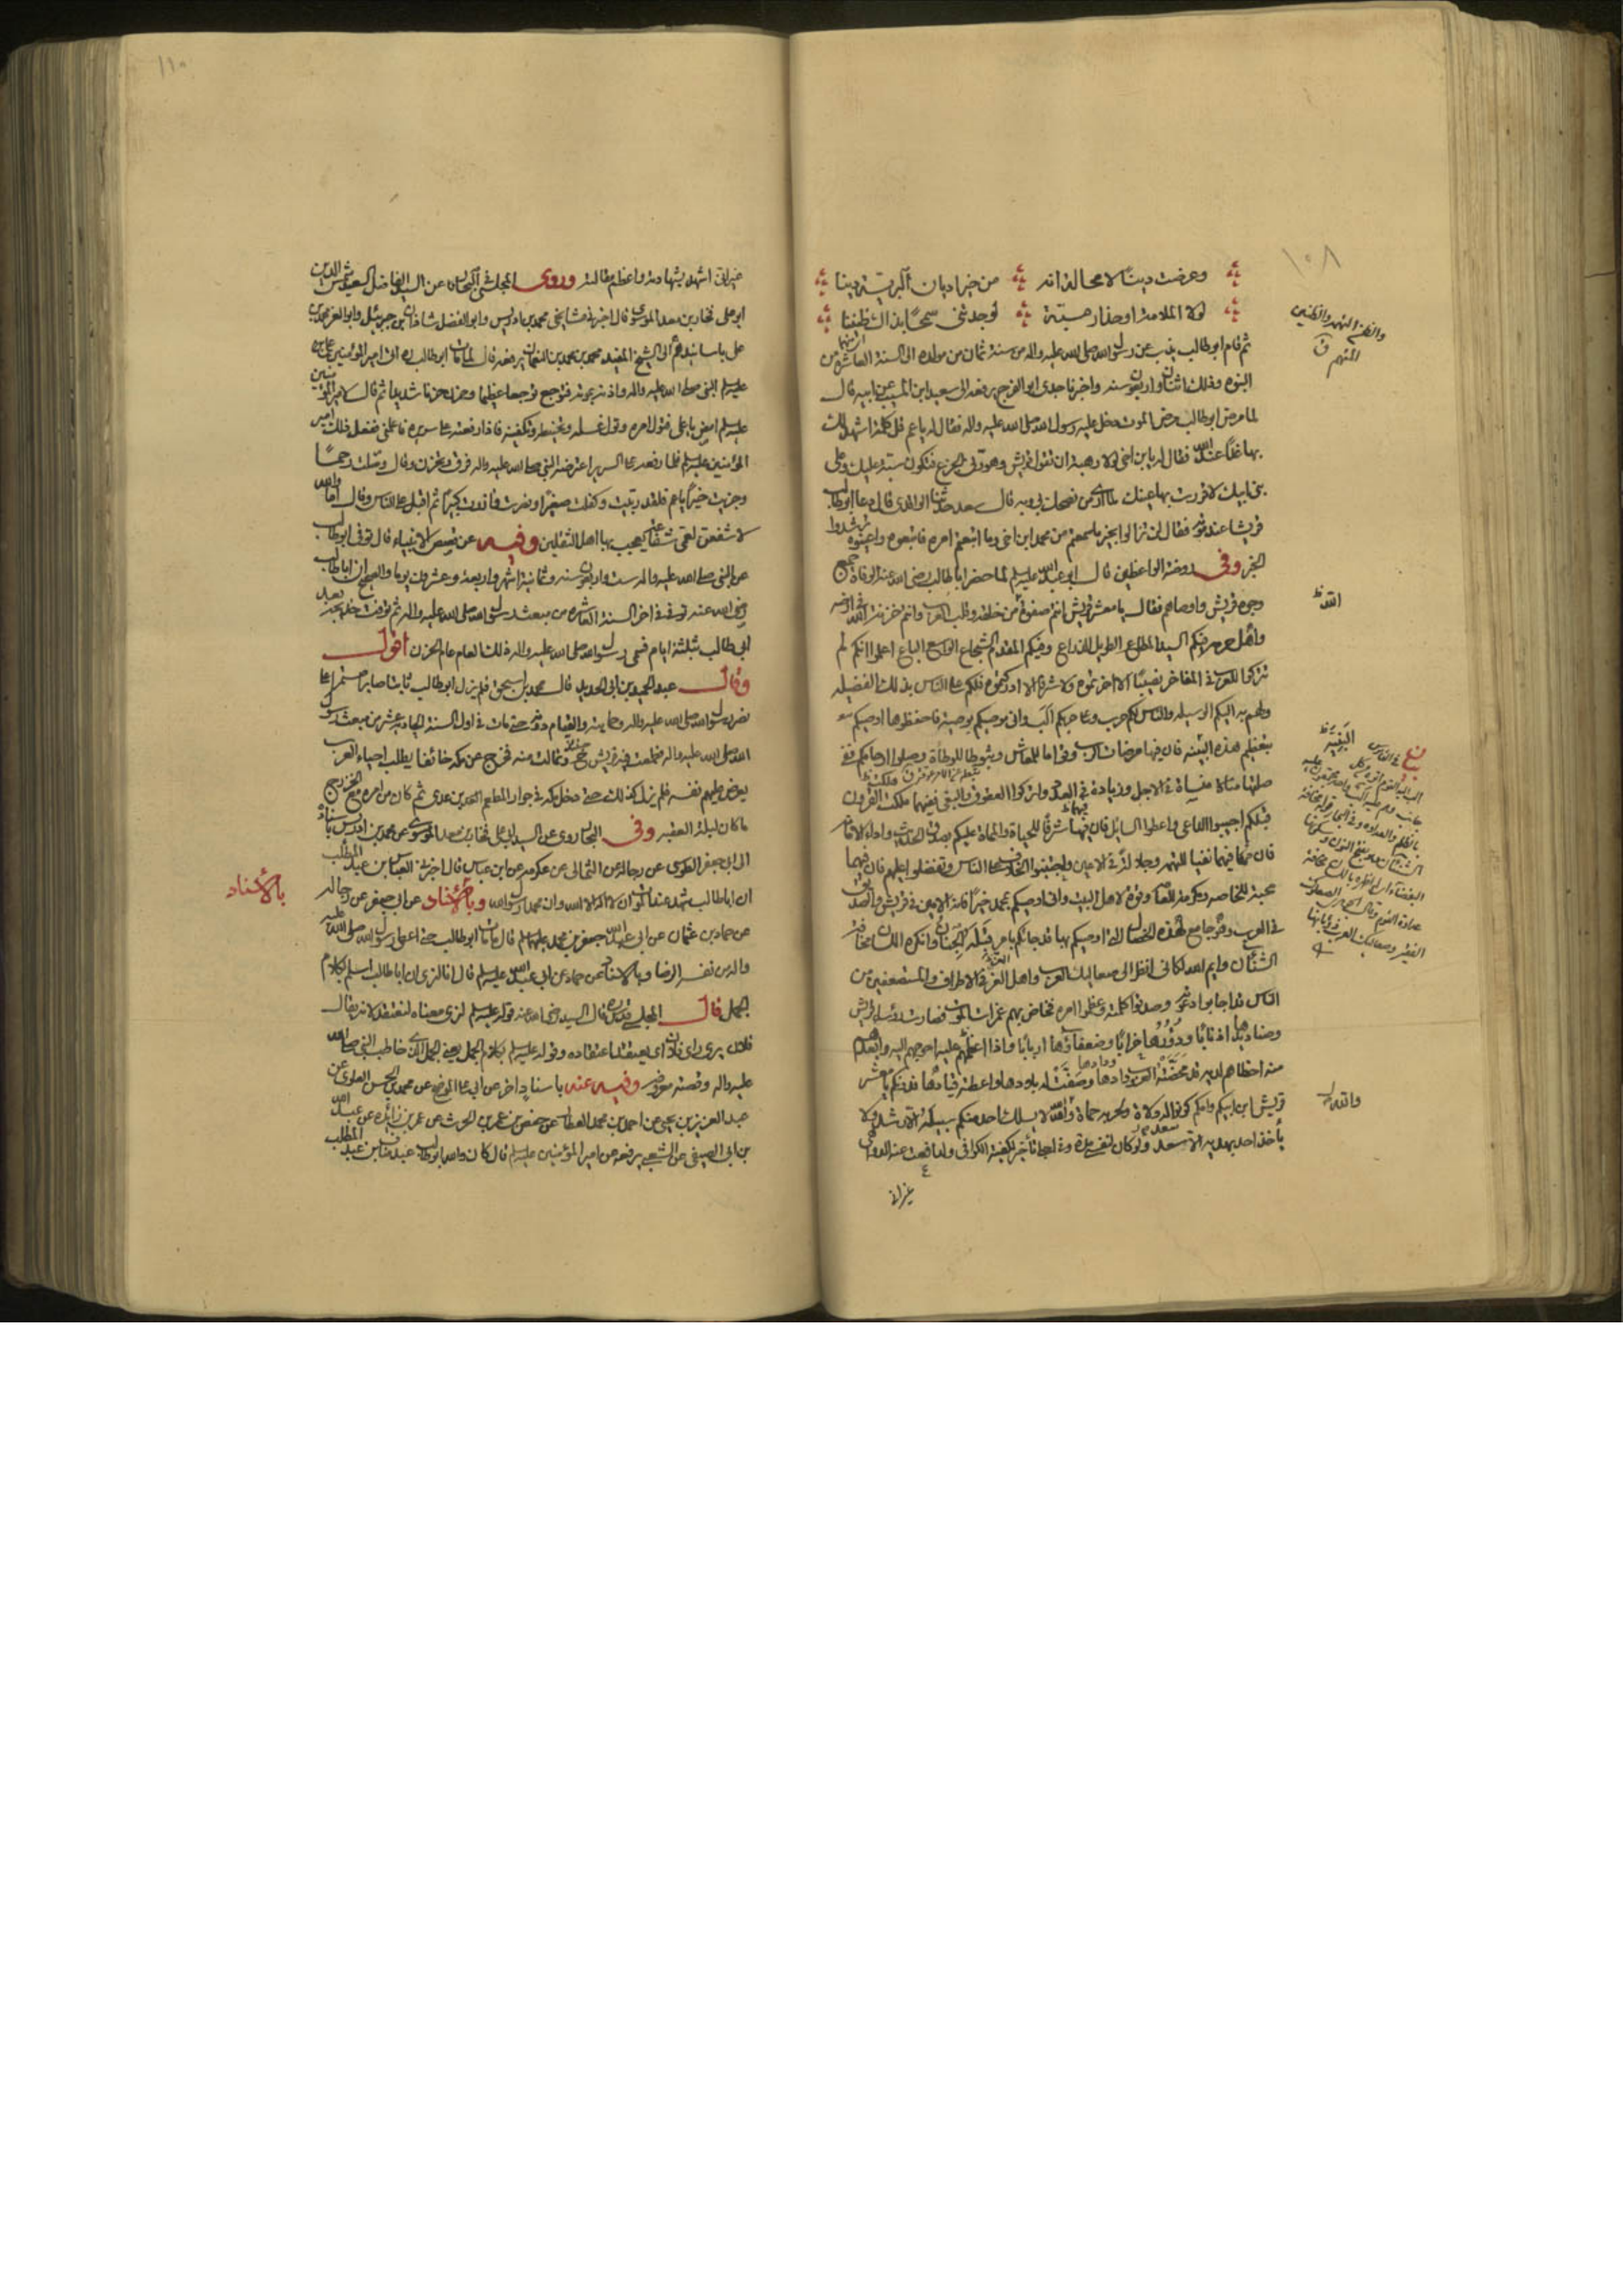 ١٠٨
وعرضت دينًا لا محالة انه من خير اديان البرية دينا
لولا الملامة او حذار سبة لوجدتني سمحًا بذاك
ثم قام ابوطالب يذب عن رسول الله صلى الله عليه واله من سنة ثمان من مولده الى السنة العاشرة من
النبوه وذلك اثنتان واربعون سنه واخبرنا جدى ابو الفرج يرفعه الى سعيد ابن المسيب عن ابيه قال
لما مرض ابوطالب مرض الموت دخل عليه رسول الله صلى الله عليه واله فقال له يا عم قل كلمة اشهد لك
بها غدًا عند الله فقال له يا بن اخى لولا رهبة ان تقول قريش فتكون سبة عليك وعلى
بنى ابيك لاقررت بها عينك
قريشا عند موته فقال لن تزالوا بخير ما سمعتم من محمد ابن اخى وما اتبعتم امره فاتبعوه واعينوه ترشدوا
الخبر وفى روضة الواعظين قال ابو عبد الله عليه السلم لما حضر ابا طالب رضى الله عنه الوفاة جمع
وجوه قريش واوصاهم فقال يا معشر قريش انتم صفوة من خلقه وقلب العرب وانتم خزنة الله فى ارضه
واهل حرمه فيكم السيد المطاع الطويل الذراع وفيكم المقدم الشجاع الواسع الباع اعلموا انكم لم
تتركوا للعرب فى المفاخر نصيبًا الا حزتموه ولا شرفًا الا ادركتموه فلكم على الناس بذلك الفضيله
ولهم به اليكم الوسيله والناس لكم حرب وعلى حربكم الب وانى موصيكم بوصية فاحفظوها اوصيكم
بتعظيم هذه البنيه فان فيها مرضات الرب وقواما للمعاش وثبوطا للوطأة وصلوا ارحامكم ففى
صلتها منساة فى الاجل وزيادة فى العدد واتركوا العقوق والبغى ففيهما هلكت القرون
قبلكم اجيبوا الداعى واعطوا السايل فان فيهما شرفًا للحياة والممات عليكم بصدق الحديث واداء الامانة
فان فيهما نفيا للتهمه وجلالة فى الاعين واجتنبوا الخلاف على الناس وتفضلوا عليهم فان فيهما
محبة للخاصه ومكرمة للعامة وقوة لاهل البيت وانى اوصيكم بمحمد خيرًا فانه الامين فى قريش والصديق
فى العرب وهو جامع لهذه الخصال التى اوصيكم بها قد جائكم بامر قبله الجنان وانكره اللسان مخافة
الشنآن وايم الله لكانى انظر الى صعاليك العرب واهل العز فى الاطراف والمستضعفين من
الناس قد اجابوا دعوته وصدقوا كلمته وعظموا امره فخاض بهم غمرات الموت فصارت رؤساء قريش
وصناديدها اذنابًا ودورها خرابًا وضعفاؤها اربابًا واذا اعظمهم عليه احوجهم اليه وابعدهم
منه احظاهم لديه قد محضته العرب ودادها وصفت له بلادها واعطته قيادها فدونكم يا معشر
قريش ابن ابيكم وامكم كونوا له ولاة ولحزبه حماة والله لا يسلك احد منكم سبيله الا رشد ولا
يأخذ احد بهديه الا سعد ولو كان لنفسى مدة وفى اجلى تأخير لكفيته الكوافى ولدافعت عنه الدواهى
غير انى
والظنين
المتهم ق
الله ظ
البنيه ظ
والله ظ
١١٠
غير انى اشهد بشهادته واعظم مقالته وروى المجلسى فى البحار عن السيد الفاضل السعيد شمس الدين
ابو على فخار بن معد الموسوى قال اخبرنى مشايخى محمد بن ادريس وابو الفضل شاذان بن جبرئيل وابو العز محمد بن
على باسانيدهم الى الشيخ المفيد محمد بن محمد بن النعمان يرفعه قال لما مات ابوطالب ره اتى امير المؤمنين على بن
عليه السلم النبى صلى الله عليه واله واذنه بموته فتوجع توجعا عظيما وحزن حزنا شديدا ثم قال لامير المؤمنين
عليه السلم امض يا على فتول امره وتول غسله وتحنيطه وتكفينه فاذا رفعته على سريره فاعلمنى ففعل ذلك امير
المؤمنين عليه السلم فلما رفعه على السرير اعترضه النبى صلى الله عليه واله فرق وتحزن وقال وصلت رحمًا
وجزيت خيرًا يا عم فلقد ربيت وكفلت صغيرًا ونصرت وآزرت كبيرًا ثم اقبل على الناس وقال اما والله
لاشفعن لعمى شفاعة يعجب بها اهل الثقلين وفيه عن قصص الانبياء قال توفى ابوطالب
عم النبى صلى الله عليه واله وست واربعون سنه وثمانية اشهر واربعة وعشرون يوما والصحيح ان ابا طالب
رضى الله عنه توفى فى اخر السنة العاشره من مبعث رسول الله صلى الله عليه واله ثم توفيت خديجة بعد
ابى طالب بثلثة ايام فسمى رسول الله صلى الله عليه واله ذلك العام عام الحزن اقول
وقال عبد الحميد بن ابى الحديد قال محمد بن اسحق فلم يزل ابوطالب ثابتا صابرا مستمرا على
نصر رسول الله صلى الله عليه واله وحمايته والقيام دونه حتى مات فى اول السنة الحادية عشر من مبعث رسول
الله صلى الله عليه واله فطمعت فيه قريش ونالت منه فخرج عن مكه خائفا يطلب احياء العرب
يعرض عليهم نفسه فلم يزل كذلك حتى دخل مكه فى جوار المطعم بن عدى ثم كان من امره مع الخزرج
ما كان ليلة العقبه وفى البحار روى عن السيد ابى على فخار بن معد الموسوى عن محمد بن ادريس باسناده
الى ابى جعفر الطوسى عن رجاله عن الثمالى عن عكرمه عن ابن عباس قال اخبرنى العباس بن عبد المطلب
ان ابا طالب شهد عند الموت ان لا اله الا الله وان محمدا رسول الله وبالاسناد عن ابى جعفر عن رجاله
عن حماد بن عثمان عن ابى عبد الله جعفر بن محمد عليهما السلم قال ما مات ابوطالب حتى اعطى رسول الله صلى الله عليه
واله من نفسه الرضا وبالاسناد عن حماد عن ابى عبد الله عليه السلم قال انا لنرى ان ابا طالب اسلم بكلام
الجمل قال المجلسى قدس سره قال السيد رضى الله عنه قوله عليه السلم لنرى معناه لنعتقد لانه يقال
فلان يرى راى فلان اى يعتقد اعتقاده وقوله عليه السلم بكلام الجمل يعنى الجمل الذى خاطب النبى صلى الله
عليه واله وقصته معروفه وفيه عنه باسناد اخر عن ابى على الموضح عن محمد بن الحسن العلوى عن
عبد العزيز بن يحيى عن احمد بن محمد العطار عن حفص بن عمر بن الحرث عن عمر بن زائده عن عبد الله
بن ابى الصيفى عن الشعبى يرفعه عن امير المؤمنين عليه السلم قال كان والله ابوطالب عبد مناف بن عبد المطلب
بالاسناد